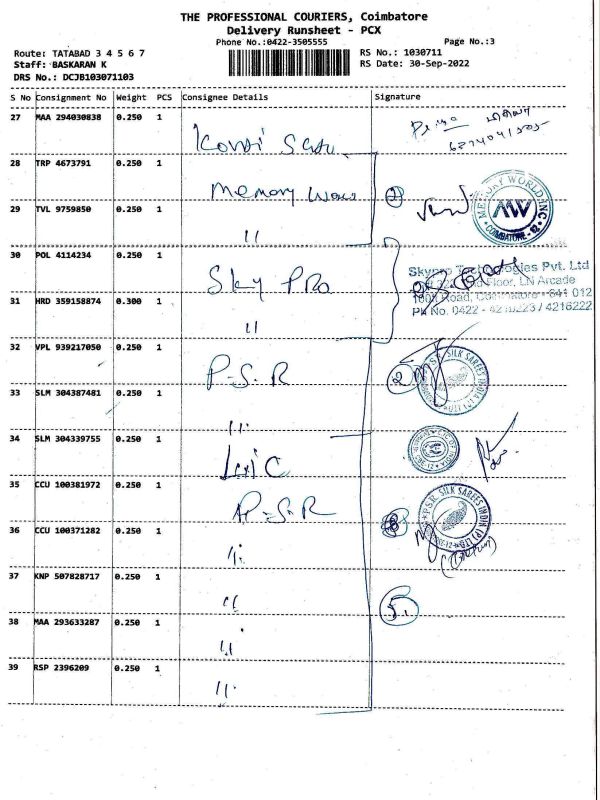 THE PROFESSIONAL COURIERS, Coimbatore
Delivery Runsheet - PCX
Phone No.:0422-3505555 Page No.:3
Route: TATABAD 3 4 5 6 7 RS No.: 1030711
Staff: BASKARAN K RS Date: 30-Sep-2022
DRS No.: DCJB103071103
S No Consignment No Weight PCS Consignee Details Signature
27 MAA 294030838 0.250 1
28 TRP 4673791 0.250 1 Memory
MEMORY WORLD INC
MW
COIMBATORE - 12
29 TVL 9759850 0.250 1 "
30 POL 4114234 0.250 1 Sky Pro
Skypro Technologies Pvt. Ltd
Floor, LN Arcade
31 HRD 359158874 0.300 1 "
Road, Coimbatore - 641 012
Ph No. 0422 - / 4216222
32 VPL 939217050 0.250 1 P-S-R 2
P.S.R. SILK SAREES INDIA (P) LTD
33 SLM 304387481 0.250 1 "
34 SLM 304339755 0.250 1 LIC
35 CCU 100381972 0.250 1 P-S-R
P.S.R. SILK SAREES INDIA (P) LTD
36 CCU 100371282 0.250 1 "
37 KNP 507828717 0.250 1 " 5.
38 MAA 293633287 0.250 1 "
39 RSP 2396209 0.250 1 "